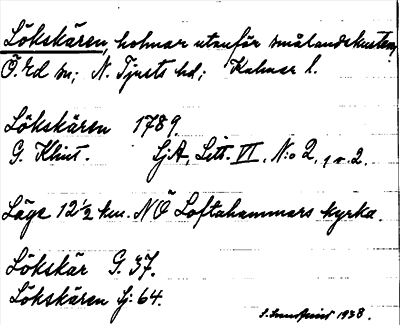 Lökskären, holmar utanför smålandskusten,
Ö. Ed sn; N. Tjusts hd; Kalmar l.
Lökskären 1789.
G. Klint. SjA, Litt. VI, N:o 2, 1 o. 2.
Läge 12 ½ km. NÖ Loftahammars kyrka.
Lökskär G. 37.
Lökskären Sj: 64.
1938.